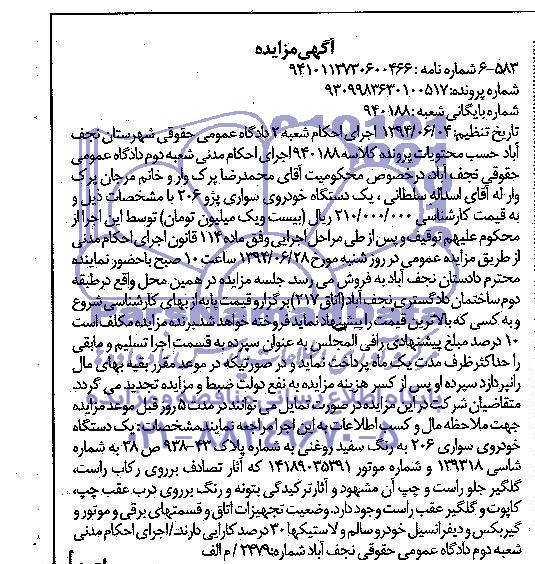 آگهی مزایده
۶-۵۸۳ شماره نامه : ۹۴۱۰۱۱۳۷۳۰۶۰۰۴۶۶
شماره پرونده: ۹۳۰۹۹۸۳۶۳۰۱۰۰۵۱۷
شماره بایگانی شعبه : ۹۴۰۱۸۸
تاریخ تنظیم: ۱۳۹۴/۰۶/۰۴ اجرای احکام شعبه ۲ دادگاه عمومی حقوقی شهرستان نجف
آباد حسب محتویات پرونده کلاسه ۹۴۰۱۸۸ اجرای احکام مدنی شعبه دوم دادگاه عمومی
حقوقی نجف آباد، درخصوص محکومیت آقای محمدرضا پرک وار و خانم مرجان پرک
وار له آقای اسداله سلطانی ، یک دستگاه خودروی سواری پژو ۲۰۶ با مشخصات ذیل و
به قیمت کارشناسی ۲۱۰/۰۰۰/۰۰۰ ریال (بیست ویک میلیون تومان) توسط این اجرا از
محکوم علیهم توقیف و پس از طی مراحل اجرایی وفق ماده ۱۱۴ قانون اجرای احکام مدنی
از طریق مزایده عمومی در روز شنبه مورخ ۱۳۹۴/۰۶/۲۸ ساعت ۱۰ صبح باحضور نماینده
محترم دادستان نجف آباد به فروش می رسد. جلسه مزایده در همین محل واقع درطبقه
دوم ساختمان دادگستری نجف آباد (اتاق ۲۱۷) برگزار و قیمت پایه از بهای کارشناسی شروع
و به کسی که بالاترین قیمت را پیشنهاد نماید فروخته خواهد شد. برنده مزایده مکلف است
۱۰ درصد مبلغ پیشنهادی رافی المجلس به عنوان سپرده به قسمت اجرا تسلیم و مابقی
را حداکثر ظرف مدت یک ماه پرداخت نماید و در صورتیکه در موعد مقرر بقیه بهای مال
رانپردازد سپرده او پس از کسر هزینه مزایده به نفع دولت ضبط و مزایده تجدید می گردد.
متقاضیان شرکت در این مزایده در صورت تمایل می توانند در مدت ۵ روز قبل موعد مزایده
جهت ملاحظه مال و کسب اطلاعات به این اجرا مراجعه نمایند. مشخصات : یک دستگاه
خودروی سواری ۲۰۶ به رنگ سفید روغنی به شماره پلاک ۴۳-۹۳۸ ص ۲۸ به شماره
شاسی ۱۳۹۳۱۸ و شماره موتور ۱۴۱۸۹۰۳۵۳۹۱ که آثار تصادف برروی رکاب راست،
گلگیر جلو راست و چپ آن مشهود و آثار ترکیدگی بتونه و رنگ برروی درب عقب چپ،
کاپوت و گلگیر عقب راست وجود دارد. وضعیت تجهیزات اتاق و قسمتهای برقی و موتور و
گیربکس و دیفرانسیل خودرو سالم و لاستیکها ۳۰ درصد کارایی دارند./اجرای احکام مدنی
شعبه دوم دادگاه عمومی حقوقی نجف آباد شماره: ۲۴۷۹ / م الف
ParsNamadData
پایگاه اطلاع رسانی مناقصه و مزایده
۰۲۱-۸۸۳۴۹۶۷۰-۵